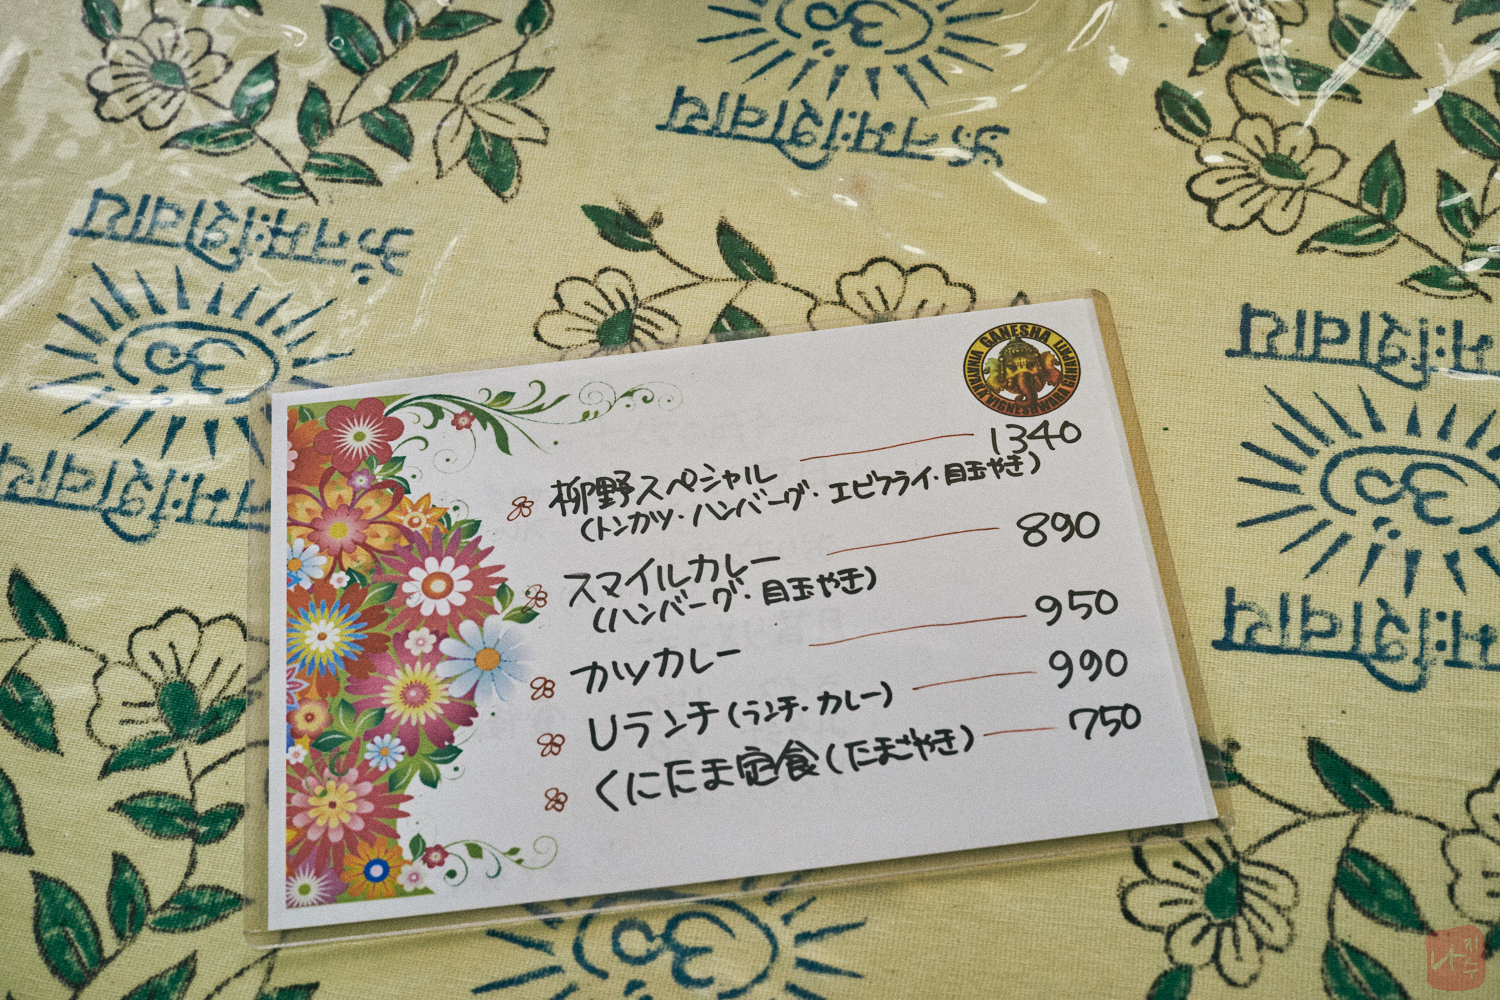 ॐ नमः शिवाय
ॐ नमः शिवाय
ॐ
ॐ
नमः शिवाय
ॐ
नमः शिवाय
नमः शिवाय
ॐ
GANESHA
VIGNESHWARA
柳野スペシャル 1340
(トンカツ・ハンバーグ・エビフライ・目玉やき)
スマイルカレー 890
(ハンバーグ・目玉やき)
カツカレー 950
Uランチ(ランチ・カレー) 990
くにたま定食(たまごやき) 750